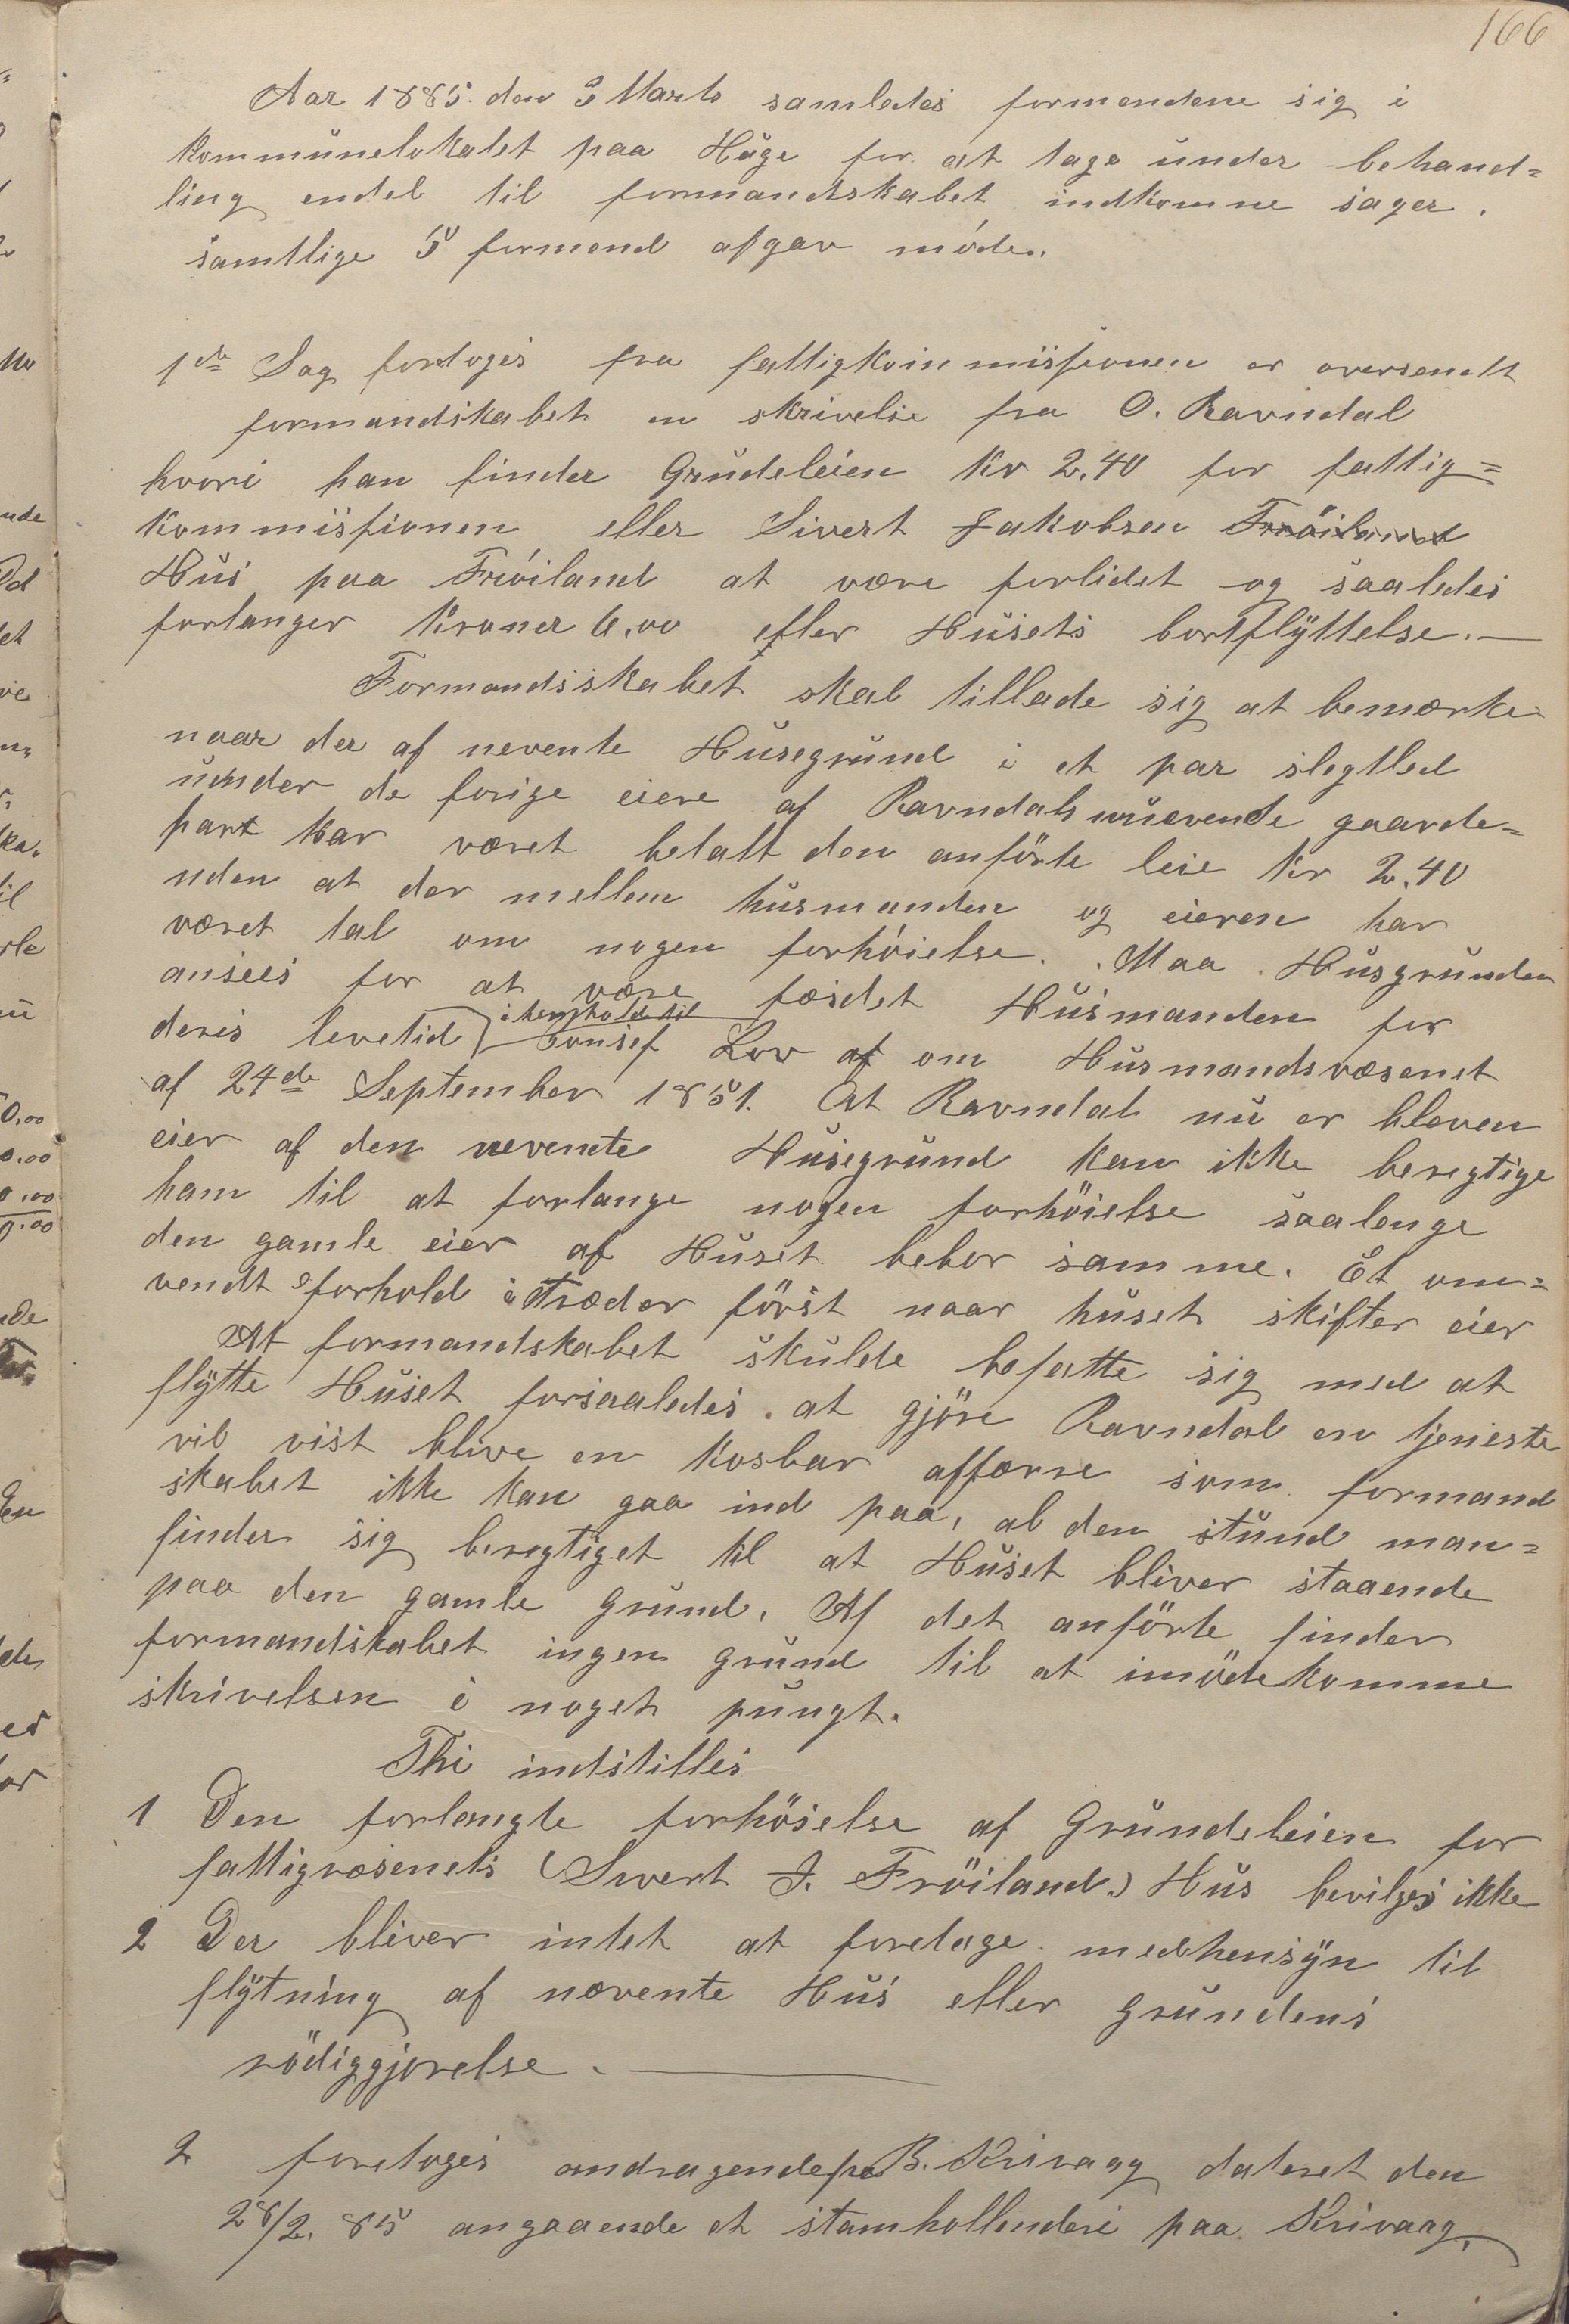 166
Aar 1885. den 3 Marts samledes formendene sig i
kommunelokalet paa Hage for at tage under behand=
ling endel til formandskabet indkomne sager.
samtlige 5 formend afgav møde.
1ste Sag foretoges fra fattigkommissionen er oversendt
formandskabet en skrivelse fra O. Ravndal
hvori han finder Grudeleien Kr 2.40 for fattig=
kommissionen eller Sivert Jakobsen Frøiland
Hus paa Frøiland at være forlidet og saaledes
forlanger Kroner 6,00 eller Husets bortflyttelse. —
Formandsskabet skal tillade sig at bemærke
naar der af nevente Husegrund i et par slegtled
under de forige eiere af Ravndals nuevende gaarde=
part har været betalt den anførte leie Kr 2.40
uden at der mellem husmanden og eieren har
været tal om nogen forhøielse. Maa Husgrunden
ansees for at være fæstet Husmanden for
i henhold til
deres levetid Lov af om Husmandsvæsenet
af 24de September 1851. At Ravndal nu er bleven
eier af den nevente Husegrund kan ikke beregtige
ham til at forlange nogen forhøielse saalenge
den gamle eier af Huset bebor samme. Et om=
vendt forhold itræder først naar huset skifter eier
At formandskabet skulde befatte sig med at
flytte Huset forsaaledes at gjøre Ravndal en tjeneste
vil vist blive en kosbar affærre som formand
skabet ikke kan gaa ind paa, al den stund man=
finder sig beregtiget til at Huset bliver staaende
paa den gamle grund. Af det anførte finder
formandskabet ingen grund til at imødekomme
skrivelsen i noget pungt.
Thi indstilles
1 Den forlangte forhøielse af Grundeleien for
fattigvæsenets (Sivert J. Frøiland.) Hus bevilges ikke
2 Der bliver intet at foretage medhensyn til
flytning af nævente Hus eller grundens
rødiggjørelse. —
2 foretoges andragende fra B. Krivaag dateret den
28/2. 85 angaaende et stamhollenderi paa Krivaag,